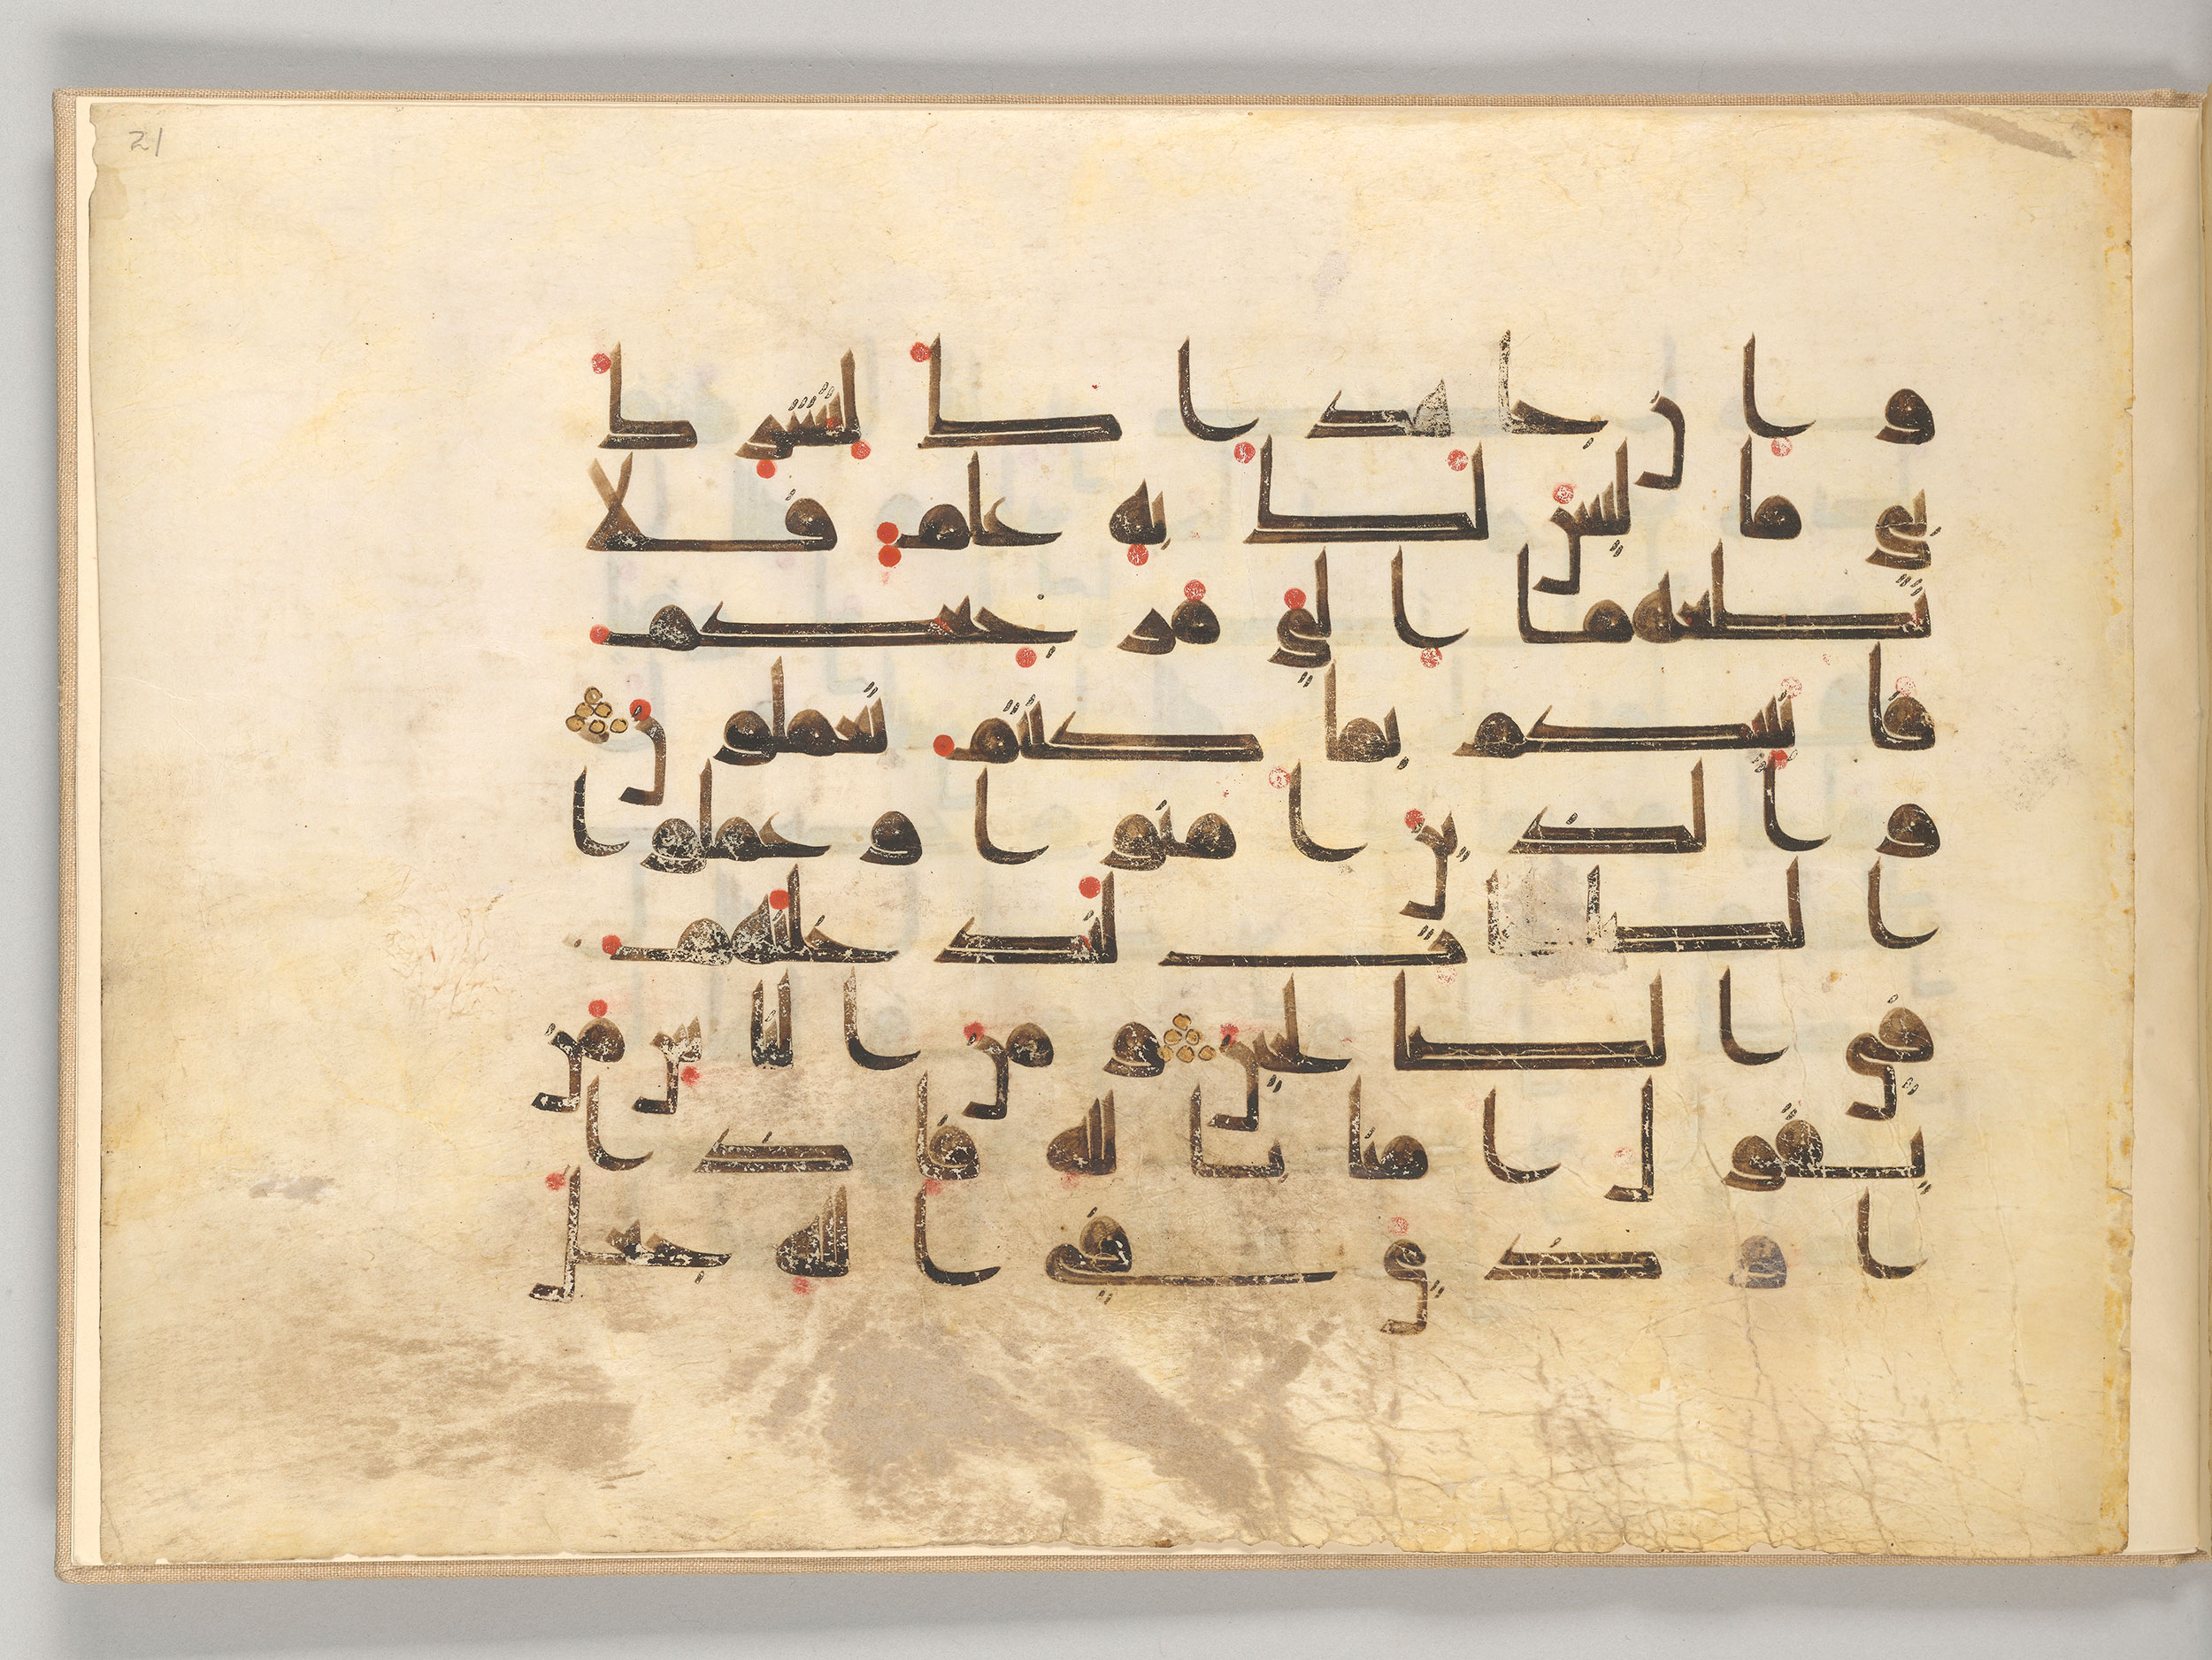 21
وان جاهداك لتشرك
بي ما ليس لك به علم فلا
تطعهما الي مرجعكم
فانبئكم بما كنتم تعملون
والذين امنوا وعملوا
الصلحت لندخلنهم
في الصلحين ومن الناس من
يقول امنا بالله فاذا
اوذي في الله جعل